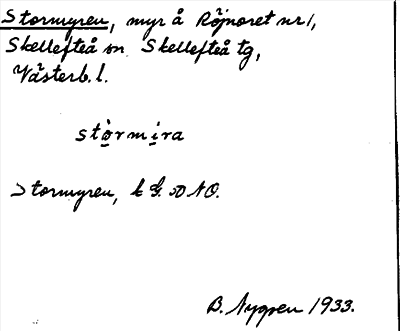 Stormyren, myr å Röjnoret nr 1,
Skellefteå sn Skellefteå tg,
Västerb. l.
stòrmira
Stormyren, k G. NO.
B. Nygren 1933.